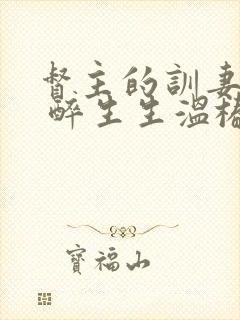 督主的訓妻
醉生生溫椿
寶福山